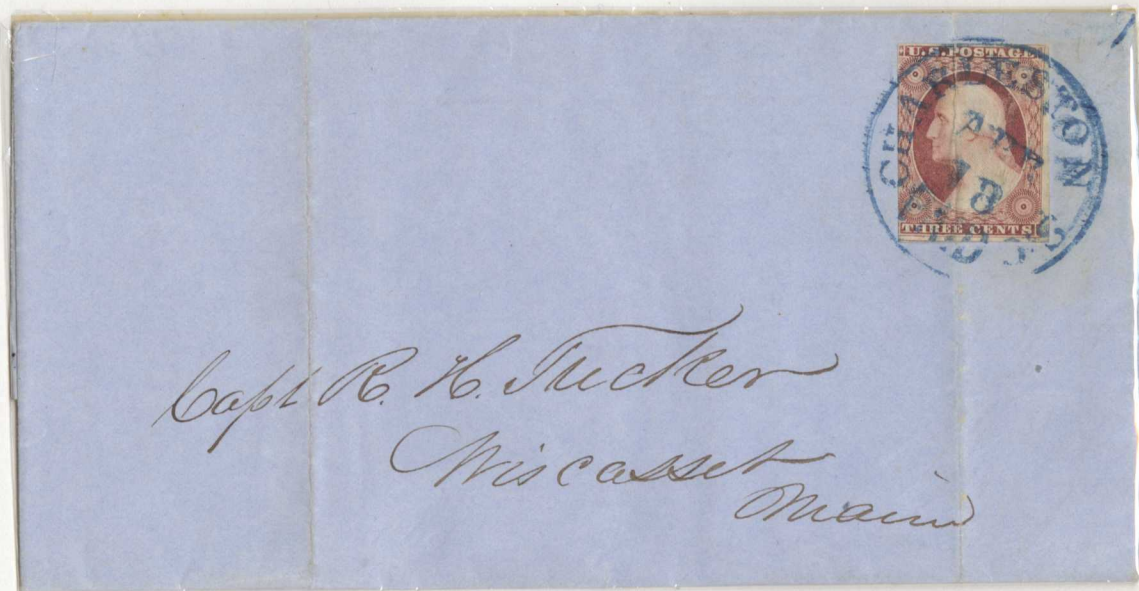 U.S. POSTAGE
THREE CENTS
CHARLESTON
18
S.C.
Capt R. H. Tucker
Wiscasset
Maine